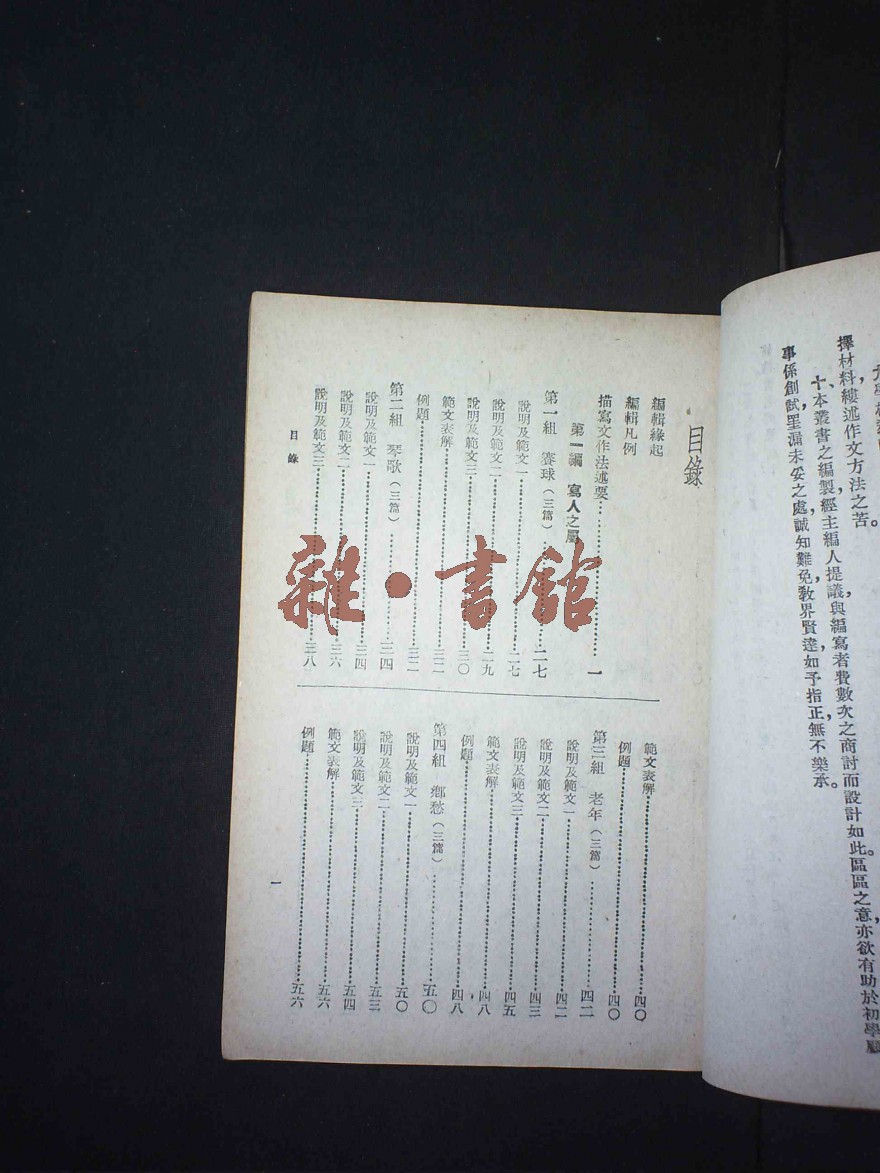 擇材料，縷述作文方法之苦。
十、本叢書之編製，經主編人提議，與編寫者費數次之商討，而設計如此。區區之意，亦欲有助於初學，
事係創試，罣漏未妥之處，誠知難免，敎界賢達，如予指正，無不樂承。
目錄
編輯緣起
編輯凡例
描寫文作法述要⋯⋯一
第一編 寫人之屬
第一組 賽球（三篇）⋯⋯二七
說明及範文一⋯⋯二七
說明及範文二⋯⋯二九
說明及範文三⋯⋯三〇
範文表解⋯⋯三二
例題⋯⋯三二
第二組 琴歌（三篇）⋯⋯三四
說明及範文一⋯⋯三四
說明及範文二⋯⋯三六
說明及範文三⋯⋯三八
範文表解⋯⋯四〇
例題⋯⋯四〇
第三組 老年（三篇）⋯⋯四二
說明及範文一⋯⋯四二
說明及範文二⋯⋯四三
說明及範文三⋯⋯四五
範文表解⋯⋯四八
例題⋯⋯四八
第四組 鄉愁（三篇）⋯⋯五〇
說明及範文一⋯⋯五〇
說明及範文二⋯⋯五三
說明及範文三⋯⋯五四
範文表解⋯⋯五六
例題⋯⋯五六
目錄
一
雜·書館